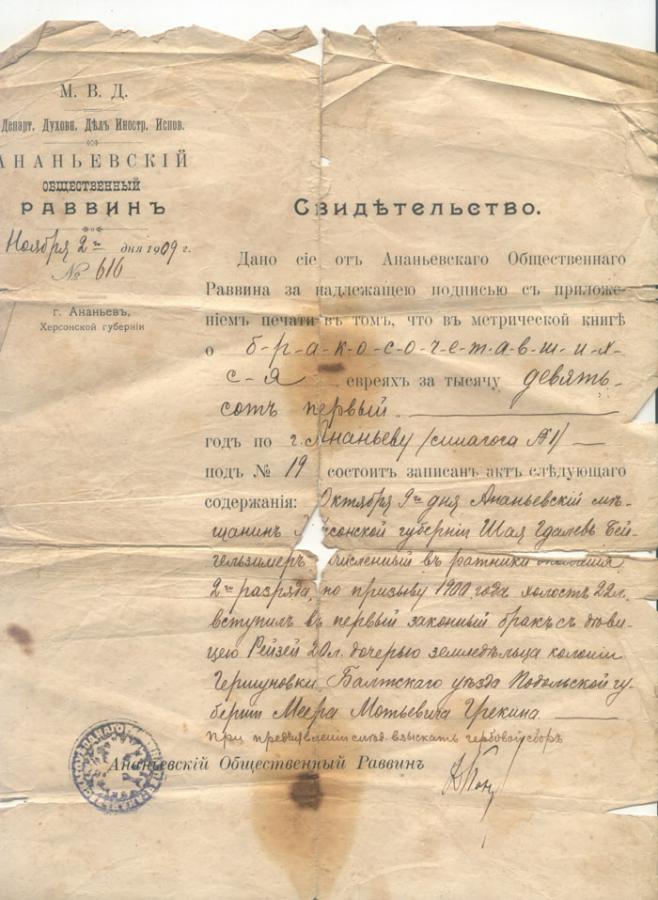 М. В. Д.
Департ. Духовн. Дѣлъ Иностр. Испов.
АНАНЬЕВСКІЙ
ОБЩЕСТВЕННЫЙ
РАВВИНЪ
Ноября 2го дня 1909 г.
№ 616
г. Ананьев,
Херсонской губерніи
Свидѣтельство.
Дано сіе отъ Ананьевскаго Общественнаго
Раввина за надлежащею подписью съ приложе-
ніемъ печати въ томъ, что въ метрической книгѣ
о б-р-а-к-о-с-о-ч-е-т-а-в-ш-и-х-
с-я евреяхъ за тысячу девять-
сотъ первый
годъ по г. Ананьеву (синагога №1)
подъ № 19 состоитъ записанъ актъ слѣдующаго
содержанія: Октября 9го дня Ананьевскій мѣ-
щанин Херсонской губерніи Шая Гдалевъ Бей-
гельзимеръ численный въ ратники ополченія
2го разряда, по призыву 1900 года холостъ 22 л.
вступилъ въ первый законный бракъ съ дѣви-
цею Рейзей 20 л. дочерью земледѣльца колоніи
Гершуновки Балтскаго уѣзда Подольской гу-
берніи Меера Мотьевича Грекина
При предъявленіи взыскать гербовый сборъ
Ананьевскій Общественный Раввинъ